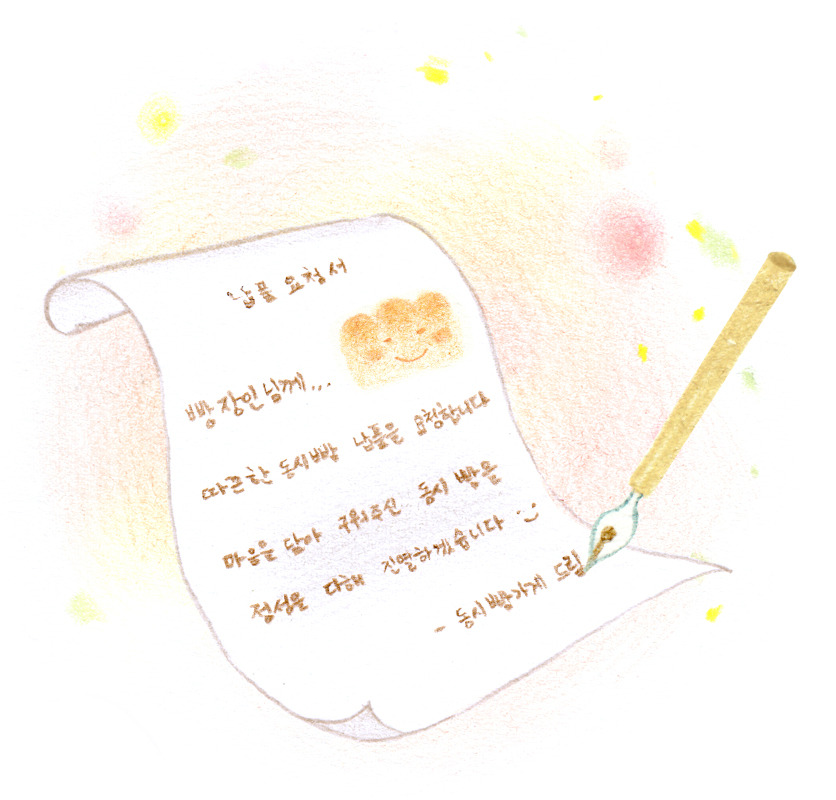 납품 요청서
빵 장인님께...
따끈한 동시빵 납품을 요청합니다
마음을 담아 구워주신 동시 빵을
정성을 다해 진열하겠습니다 :-)
- 동시빵가게 드림